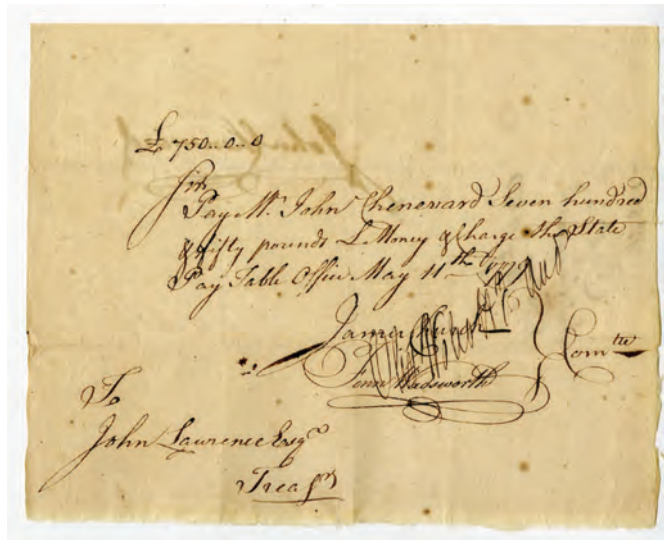 £ 750..0..0
Sir
Pay Mr. John Chenevard Seven hundred
& fifty pounds L Money & Charge the State
Pay Table Office May 11th 1779
James Church
Fenn Wadsworth
Comtee
To
John Lawrence Esqr
Treasr